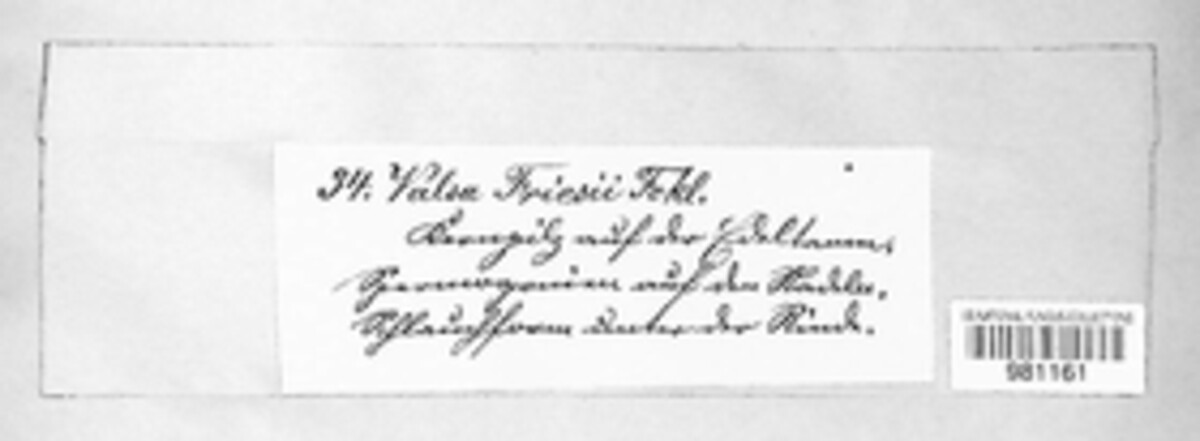 34. Valsa Friesii Fckl.
Kernpilz auf der Edeltanne,
Spermogonien auf den Nadeln,
Schlauchform unter der Rinde.
981161